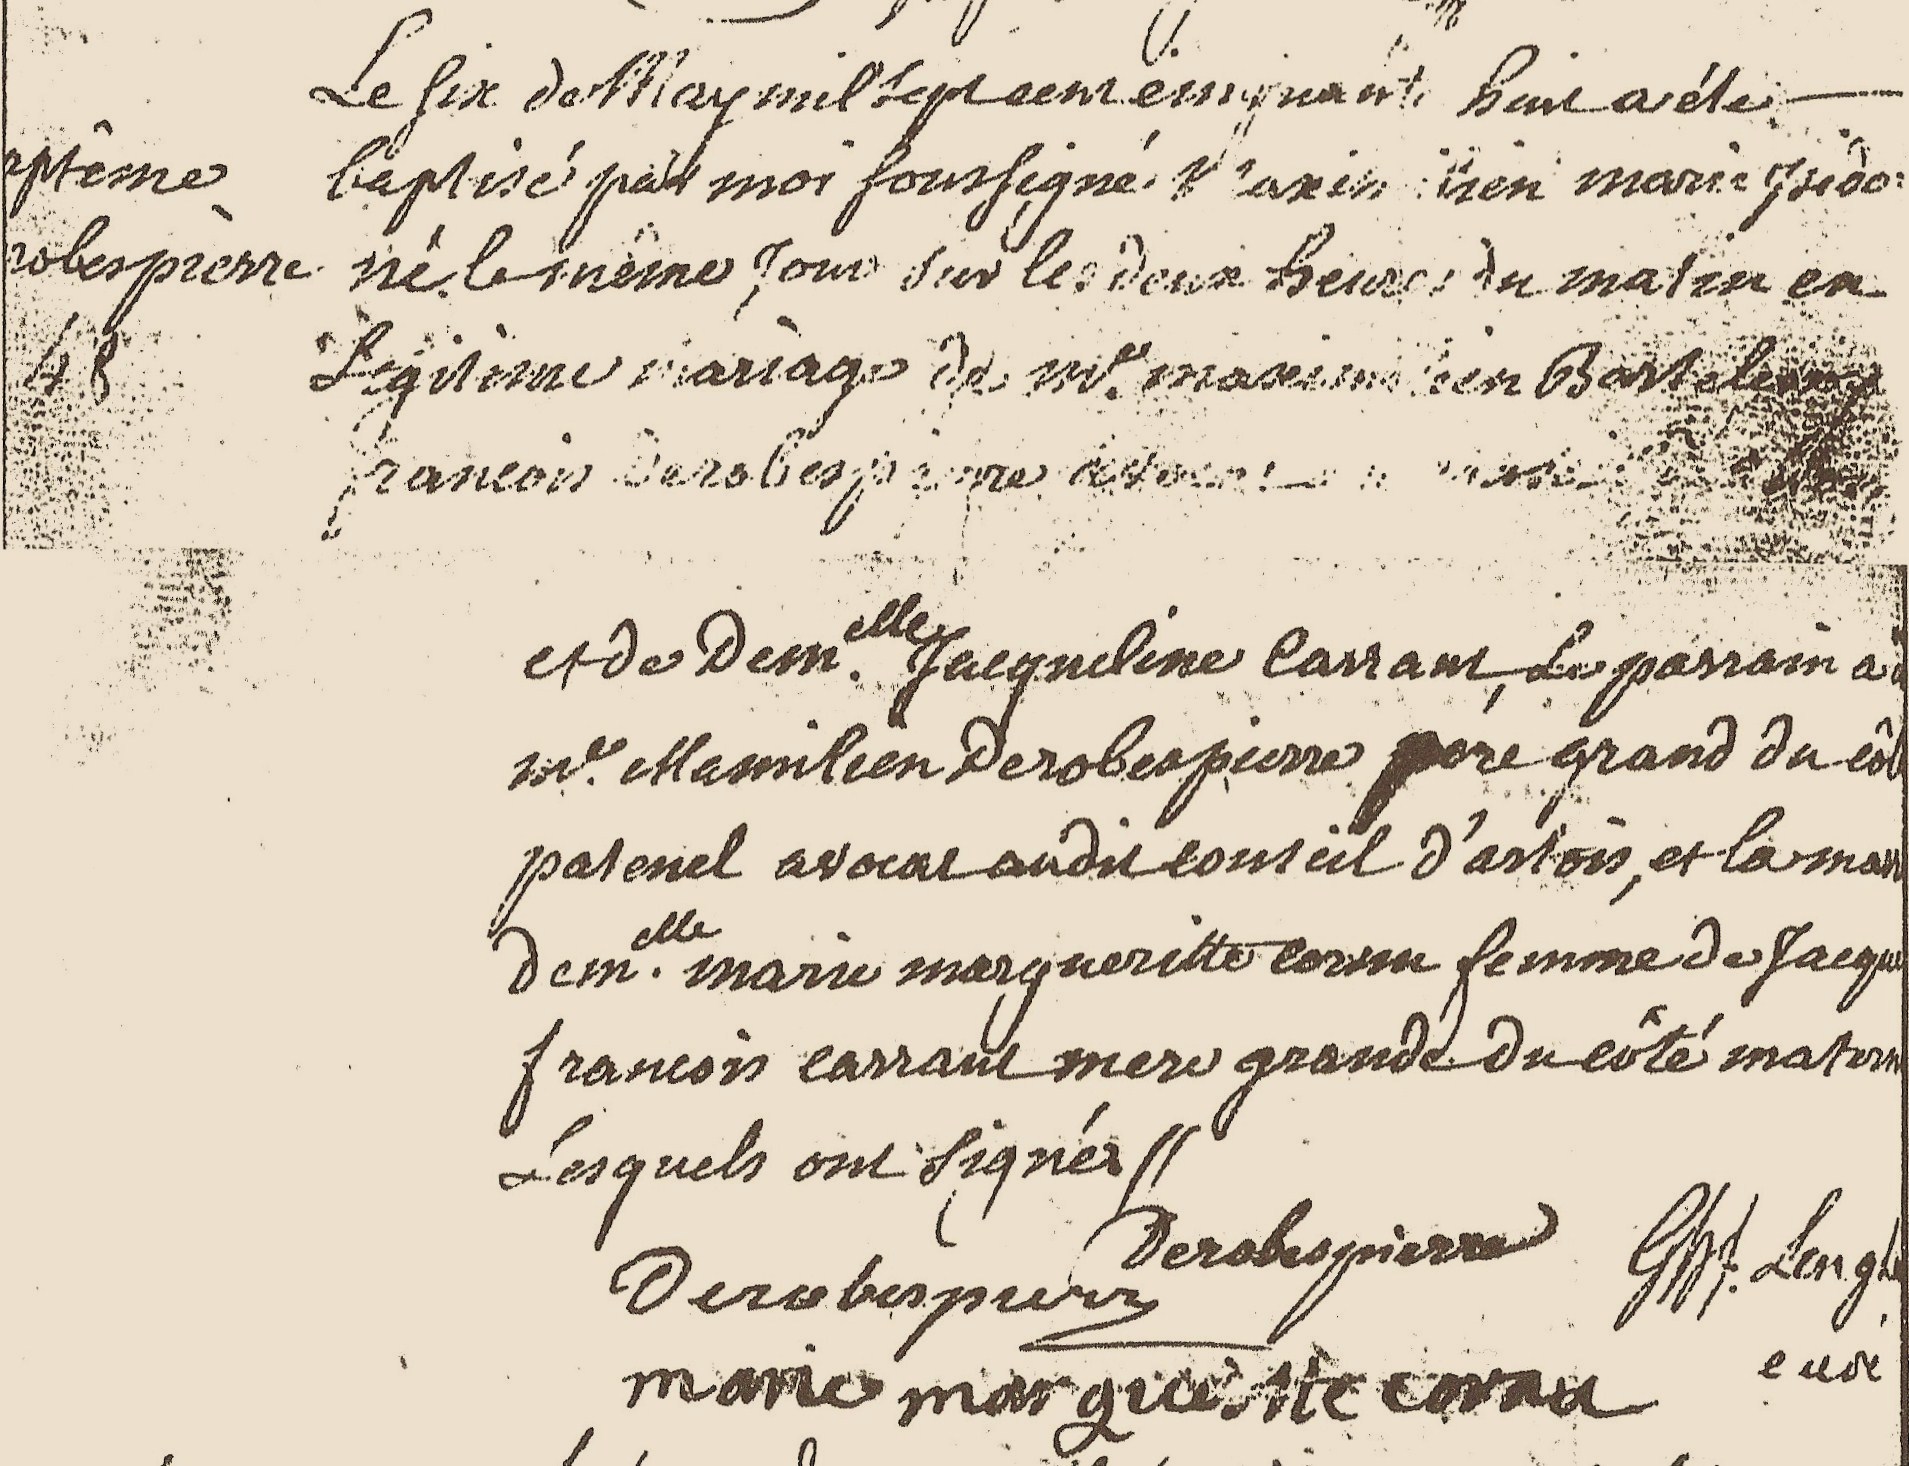 Le six de May mil sept cent cinquante huit a été
baptisé par moi soussigné Maximilien marie Isido
né le même Jour sur les deux heures du matin en
Légitime mariage de mr. maximilien Bartelemy
francois Derobespierre avocat
et de Demelle. Jacqueline Carraut, Le parrain a
mr. Maxmilien Derobespierre père grand du côt
patenel avocat audit conseil d'artois, et la marr
demelle. marie margueritte cornu femme de Jacque
francois carraut mere grande du côté matern
Lesquels ont signés //
Derobespierre
Derobespierre
Lengl
curé
marie margueritte cornu
ptême
robespierre
48